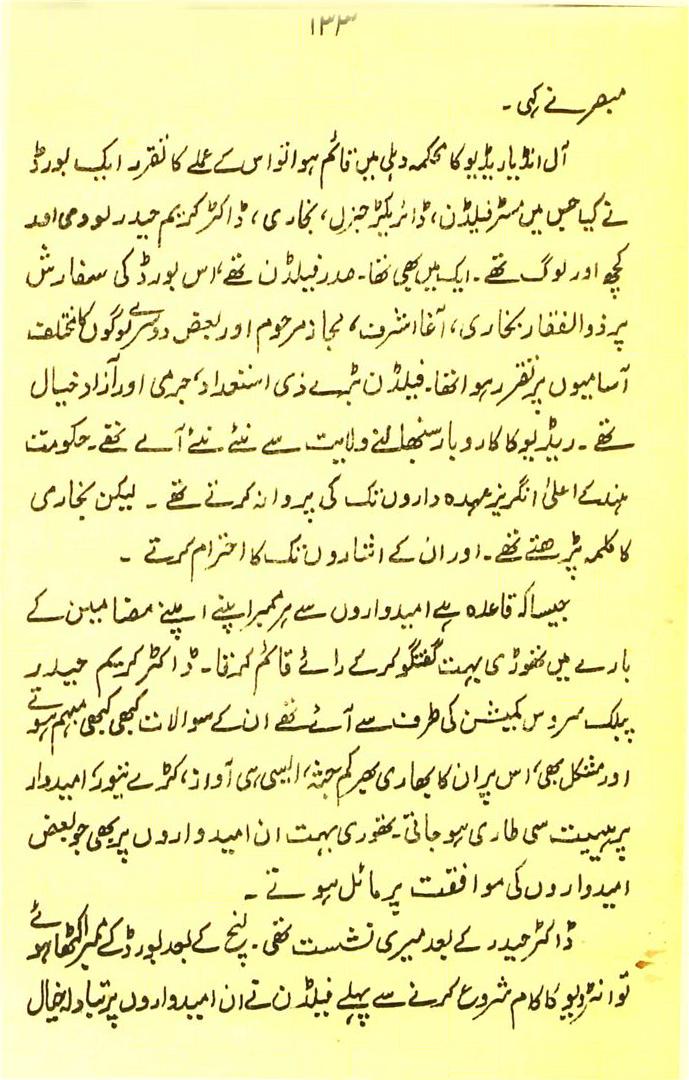 ۱۳۳
مبصر نے کہی ۔
آل انڈیا ریڈیو کا محکمہ دہلی میں قائم ہوا تو اس کے عملے کا تقرر ایک بورڈ
نے کیا جس میں مسٹر فیلڈن، ڈائریکٹر جنرل، بخاری، ڈاکٹر کریم حیدر لودھی اور
کچھ اور لوگ تھے ۔ ایک میں بھی تھا ۔ صدر فیلڈن تھے، اس بورڈ کی سفارش
پر ذوالفقار بخاری، آغا اشرف، مجاز مرحوم اور بعض دوسرے لوگوں کا مختلف
آسامیوں پر تقرر ہوا تھا ۔ فیلڈن بڑے ذی استعداد، جری اور آزاد خیال
تھے ۔ ریڈیو کا کاروبار سنبھالنے ولایت سے نئے نئے آئے تھے ۔ حکومت
ہند کے اعلیٰ انگریز عہدہ داروں تک کی پروا نہ کرتے تھے ۔ لیکن بخاری
کا کلمہ پڑھتے تھے ۔ اور ان کے اشاروں تک کا احترام کرتے ۔
جیسا کہ قاعدہ ہے امیدواروں سے ہر ممبر اپنے اپنے مضامین کے
بارے میں تھوڑی بہت گفتگو کر کے رائے قائم کرتا ۔ ڈاکٹر کریم حیدر
پبلک سروس کمیشن کی طرف سے آئے تھے ان کے سوالات کبھی کبھی مبہم ہوتے
اور مشکل بھی، اس پر ان کا بھاری بھرکم جثہ، ایسی ہی آواز، کڑے تیور، امیدوار
پر ہیبت سی طاری ہو جاتی ۔ تھوڑی بہت ان امیدواروں پر بھی جو بعض
امیدواروں کی موافقت پر مائل ہوتے ۔
ڈاکٹر حیدر کے بعد میری نشست تھی ۔ لنچ کے بعد بورڈ کے ممبر اکٹھا ہوئے
تو انٹرویو کا کام شروع کرنے سے پہلے فیلڈن نے ان امیدواروں پر تبادلہ خیال